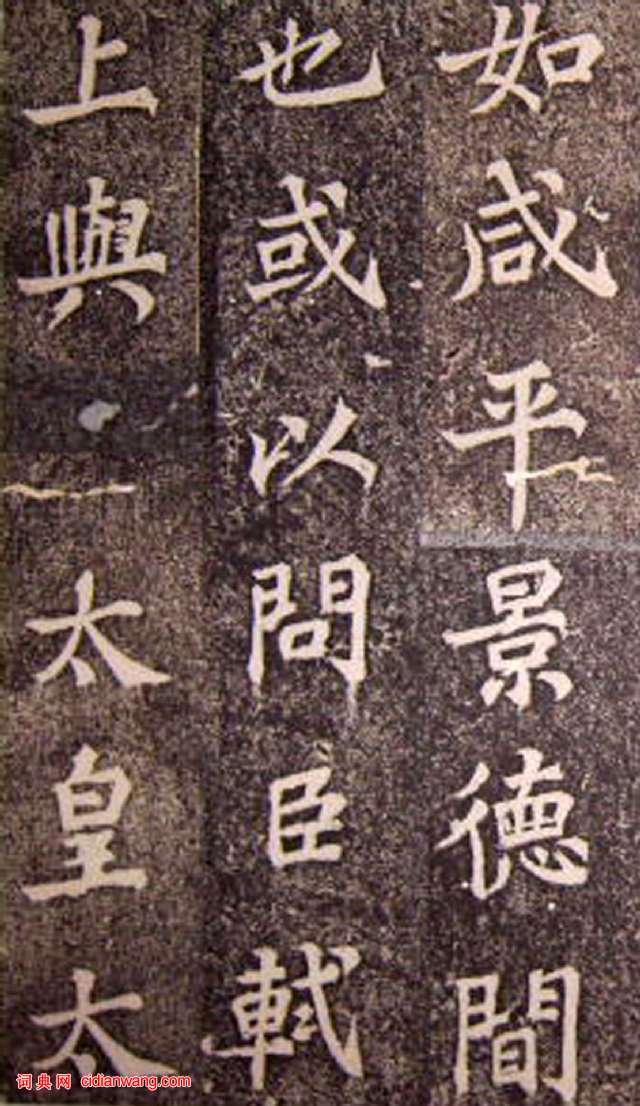 如咸平景德間
也或以問臣軾
上與太皇太
词典网 cidianwang.com